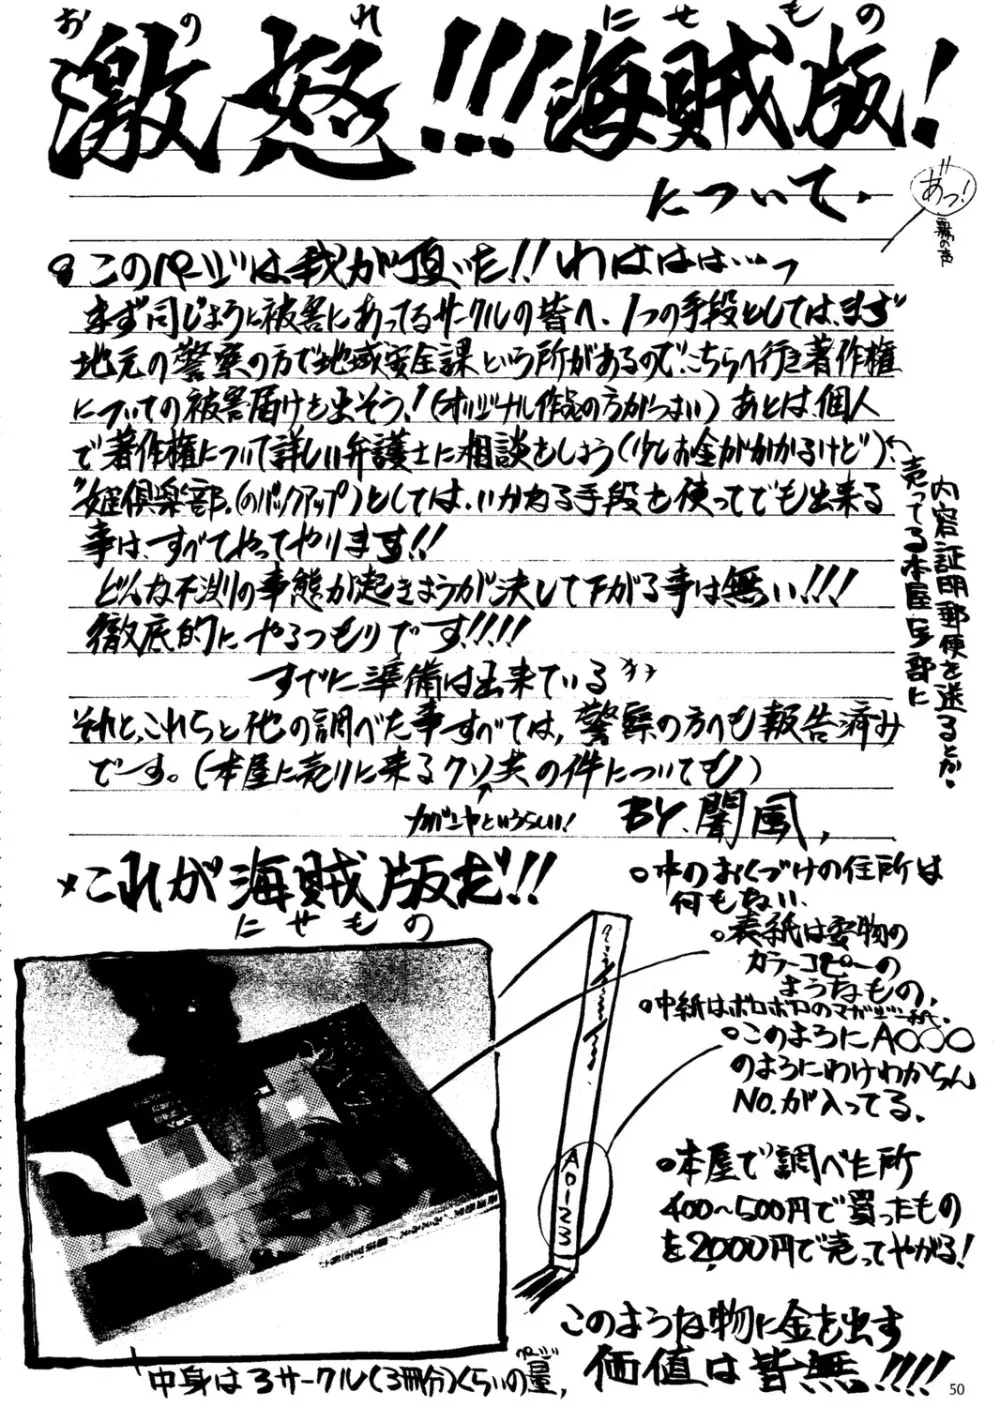 おのれ にせもの
激怒!!!海賊版!
について.
あっ!
霧の声
このページは我が頂いた!!わはははは…っ
まず同じように被害にあってるサークルの皆へ、1つの手段としては、まず
地元の警察の方で地域安全課という所があるので、こちらへ行き著作権
についての被害届けを出そう!(オリジナル作品の方がつよい)あとは、個人
で著作権について詳しい弁護士に相談をしよう(少しお金がかかるけど)
"姫倶楽部"(のバックアップ)としては、いかなる手段を使ってでも出来る
事は、すべてやってやります!!
どんな不測の事態が起きようが決して下がる事は無い!!!
徹底的にやるつもりです!!!!
すでに準備は出来ている
それと、これらと他の調べた事すべては、警察の方へも報告済み
で―す。(本屋に売りに来るクソ共の件についても)
カバニヤというらしい!
BY.闇風,
内容証明郵便を送るとか.
売ってる本屋全部に
×これが海賊版だ!!
にせもの
○中のおくづけの住所は
何もない.
○表紙は実物の
カラーコピーの
ようなもの.
○中紙はボロボロのマガジン
○このようにA○○○
のようにわけわからん
NO.が入ってる.
A0123
○本屋で調べた所
400~500円で買ったもの
を2,000円で売ってやがる!
このような物に金を出す
価値は皆無!!!!
中身は3サークル(3冊分)くらいの量,
ページ
50